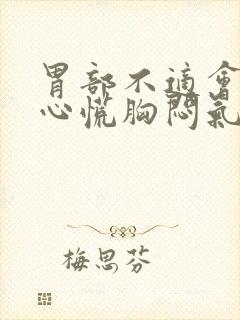 胃部不適會
心慌胸悶氣
梅思芬